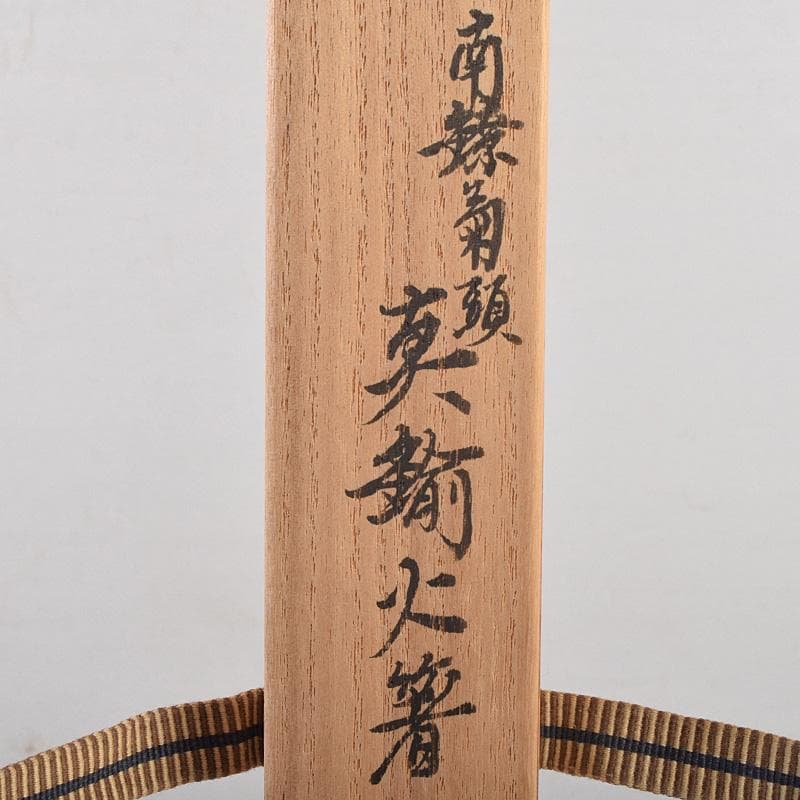 南鐐菊頭
真鍮火箸